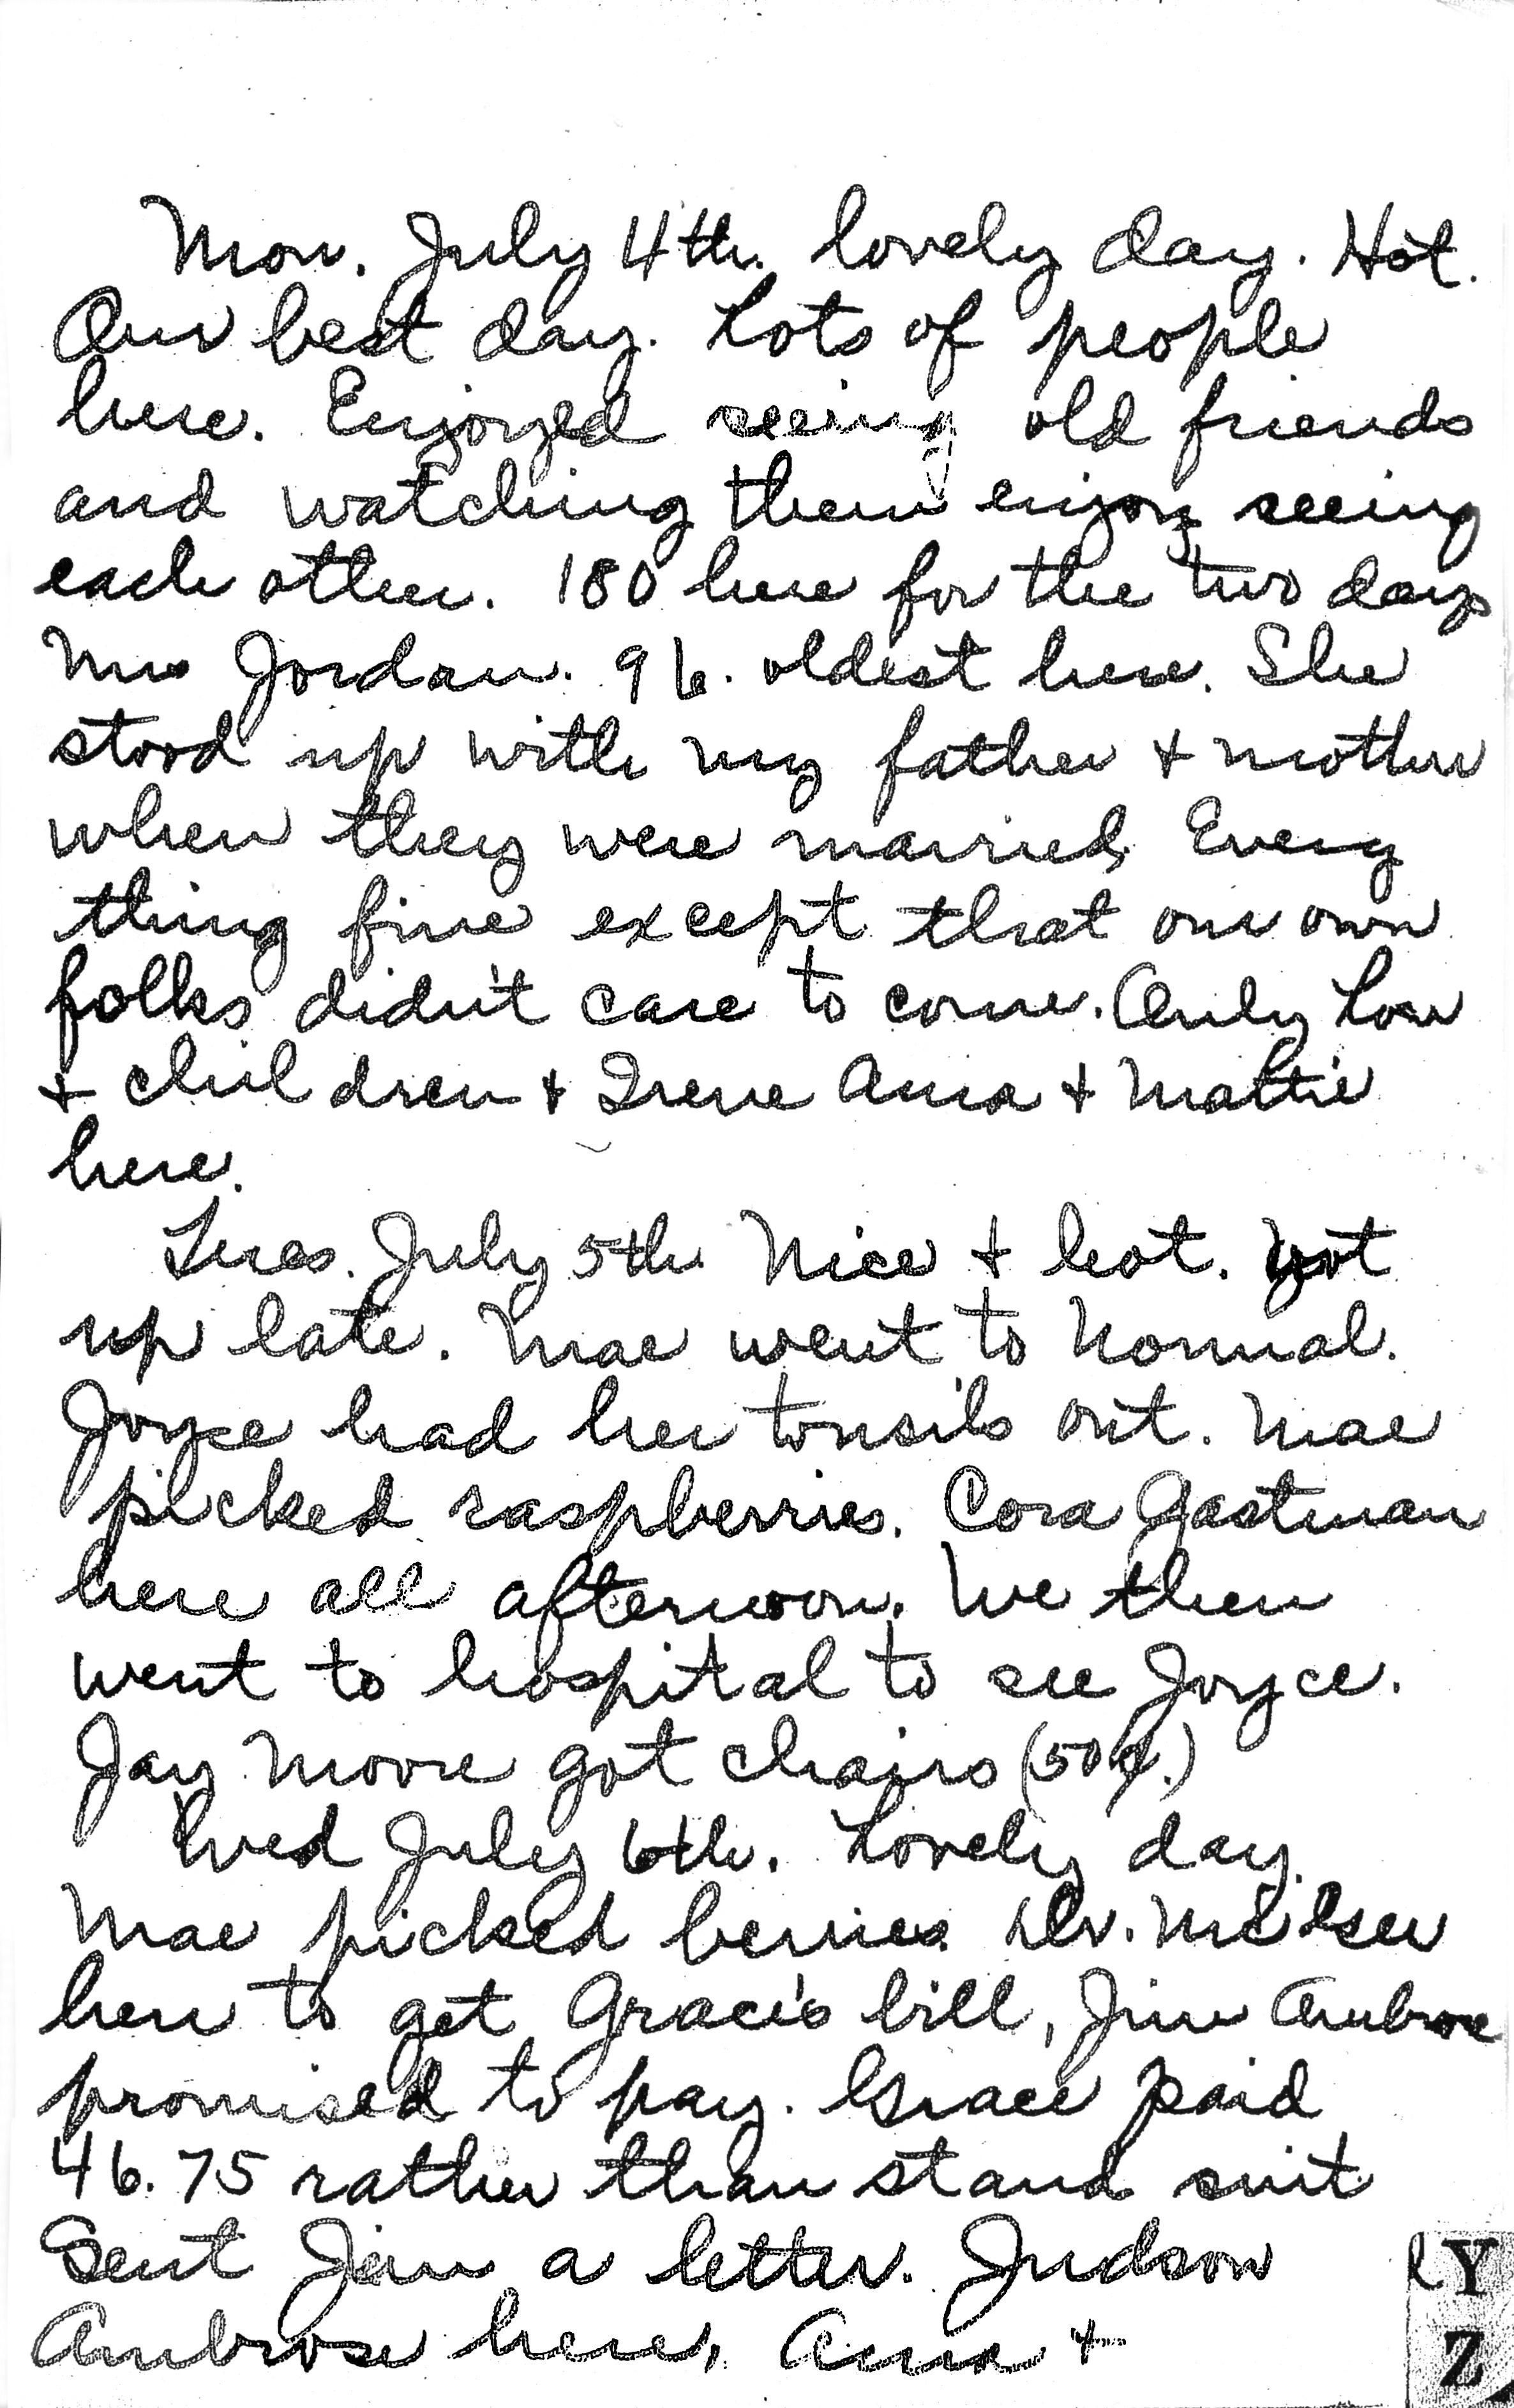 Mon. July 4th. lovely day. Hot.
Our best day. Lots of people
here. Enjoyed seeing old friends
and watching them enjoy seeing
each other. 180 here for the two days
Mrs Jordan. 96. oldest here. She
stood up with my father + mother
when they were married. Every
thing fine except that our own
folks didn't care to come. Only Lou
+ children + Irene Anna + Mattie
here.
Tues. July 5th Nice + hot. Got
up late. Mae went to Normal.
Joyce had her tonsils out. Mae
picked raspberries. Cora Gastman
here all afternoon. We then
went to hospital to see Joyce.
Jay Moore got chairs (50¢.)
Wed July 6th. Lovely day.
Mae picked berries. Dr.
here to get Grace's bill, Jim Ambrose
promised to pay. Grace paid
46.75 rather than stand suit
Sent Jim a letter. Judson
Ambrose here, Anna +
Y
Z